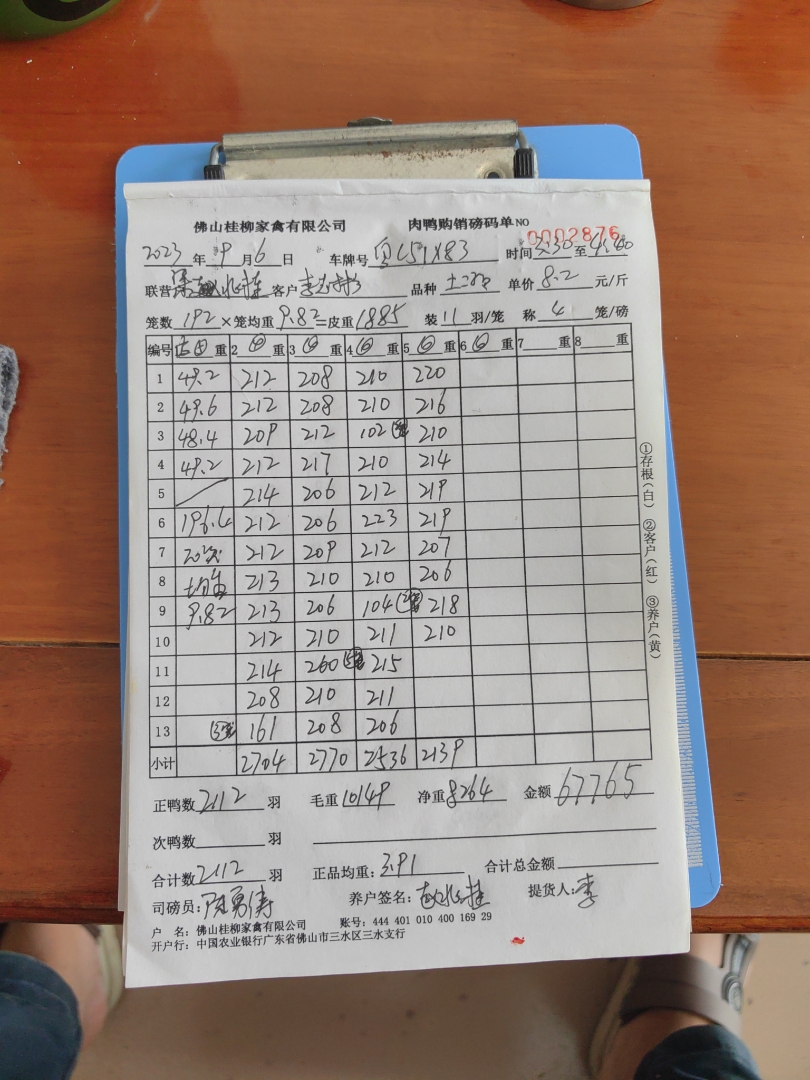 佛山桂柳家禽有限公司 肉鸭购销磅码单 NO 0002876
2023 年 9 月 6 日 车牌号 时间 至
联营 客户 李 品种 土 单价 8.2 元/斤
笼数 192 ×笼均重 9.82 =皮重 1885 装 11 羽/笼 称 4 笼/磅
编号 重 2 重 3 重 4 重 5 重 6 重 7 重 8 重
1 49.2 212 208 210 220
2 49.6 212 208 210 216
3 48.4 209 212 102 210
4 49.2 212 217 210 214
5 214 206 212 219
6 196.4 212 206 223 219
7 20 212 209 212 207
8 213 210 210 206
9 9.82 213 206 104 218
10 212 210 211 210
11 214 260 215
12 208 210 211
13 161 208 206
小计 2704 2770 2536 2139
正鸭数 2112 羽 毛重 10149 净重 8264 金额 67765
次鸭数 羽
合计数 2112 羽 正品均重: 3.91 合计总金额
司磅员: 陈勇 养户签名: 提货人: 李
户 名: 佛山桂柳家禽有限公司 账号: 444 401 010 400 169 29
开户行: 中国农业银行广东省佛山市三水区三水支行
①存根(白) ②客户(红) ③养户(黄)